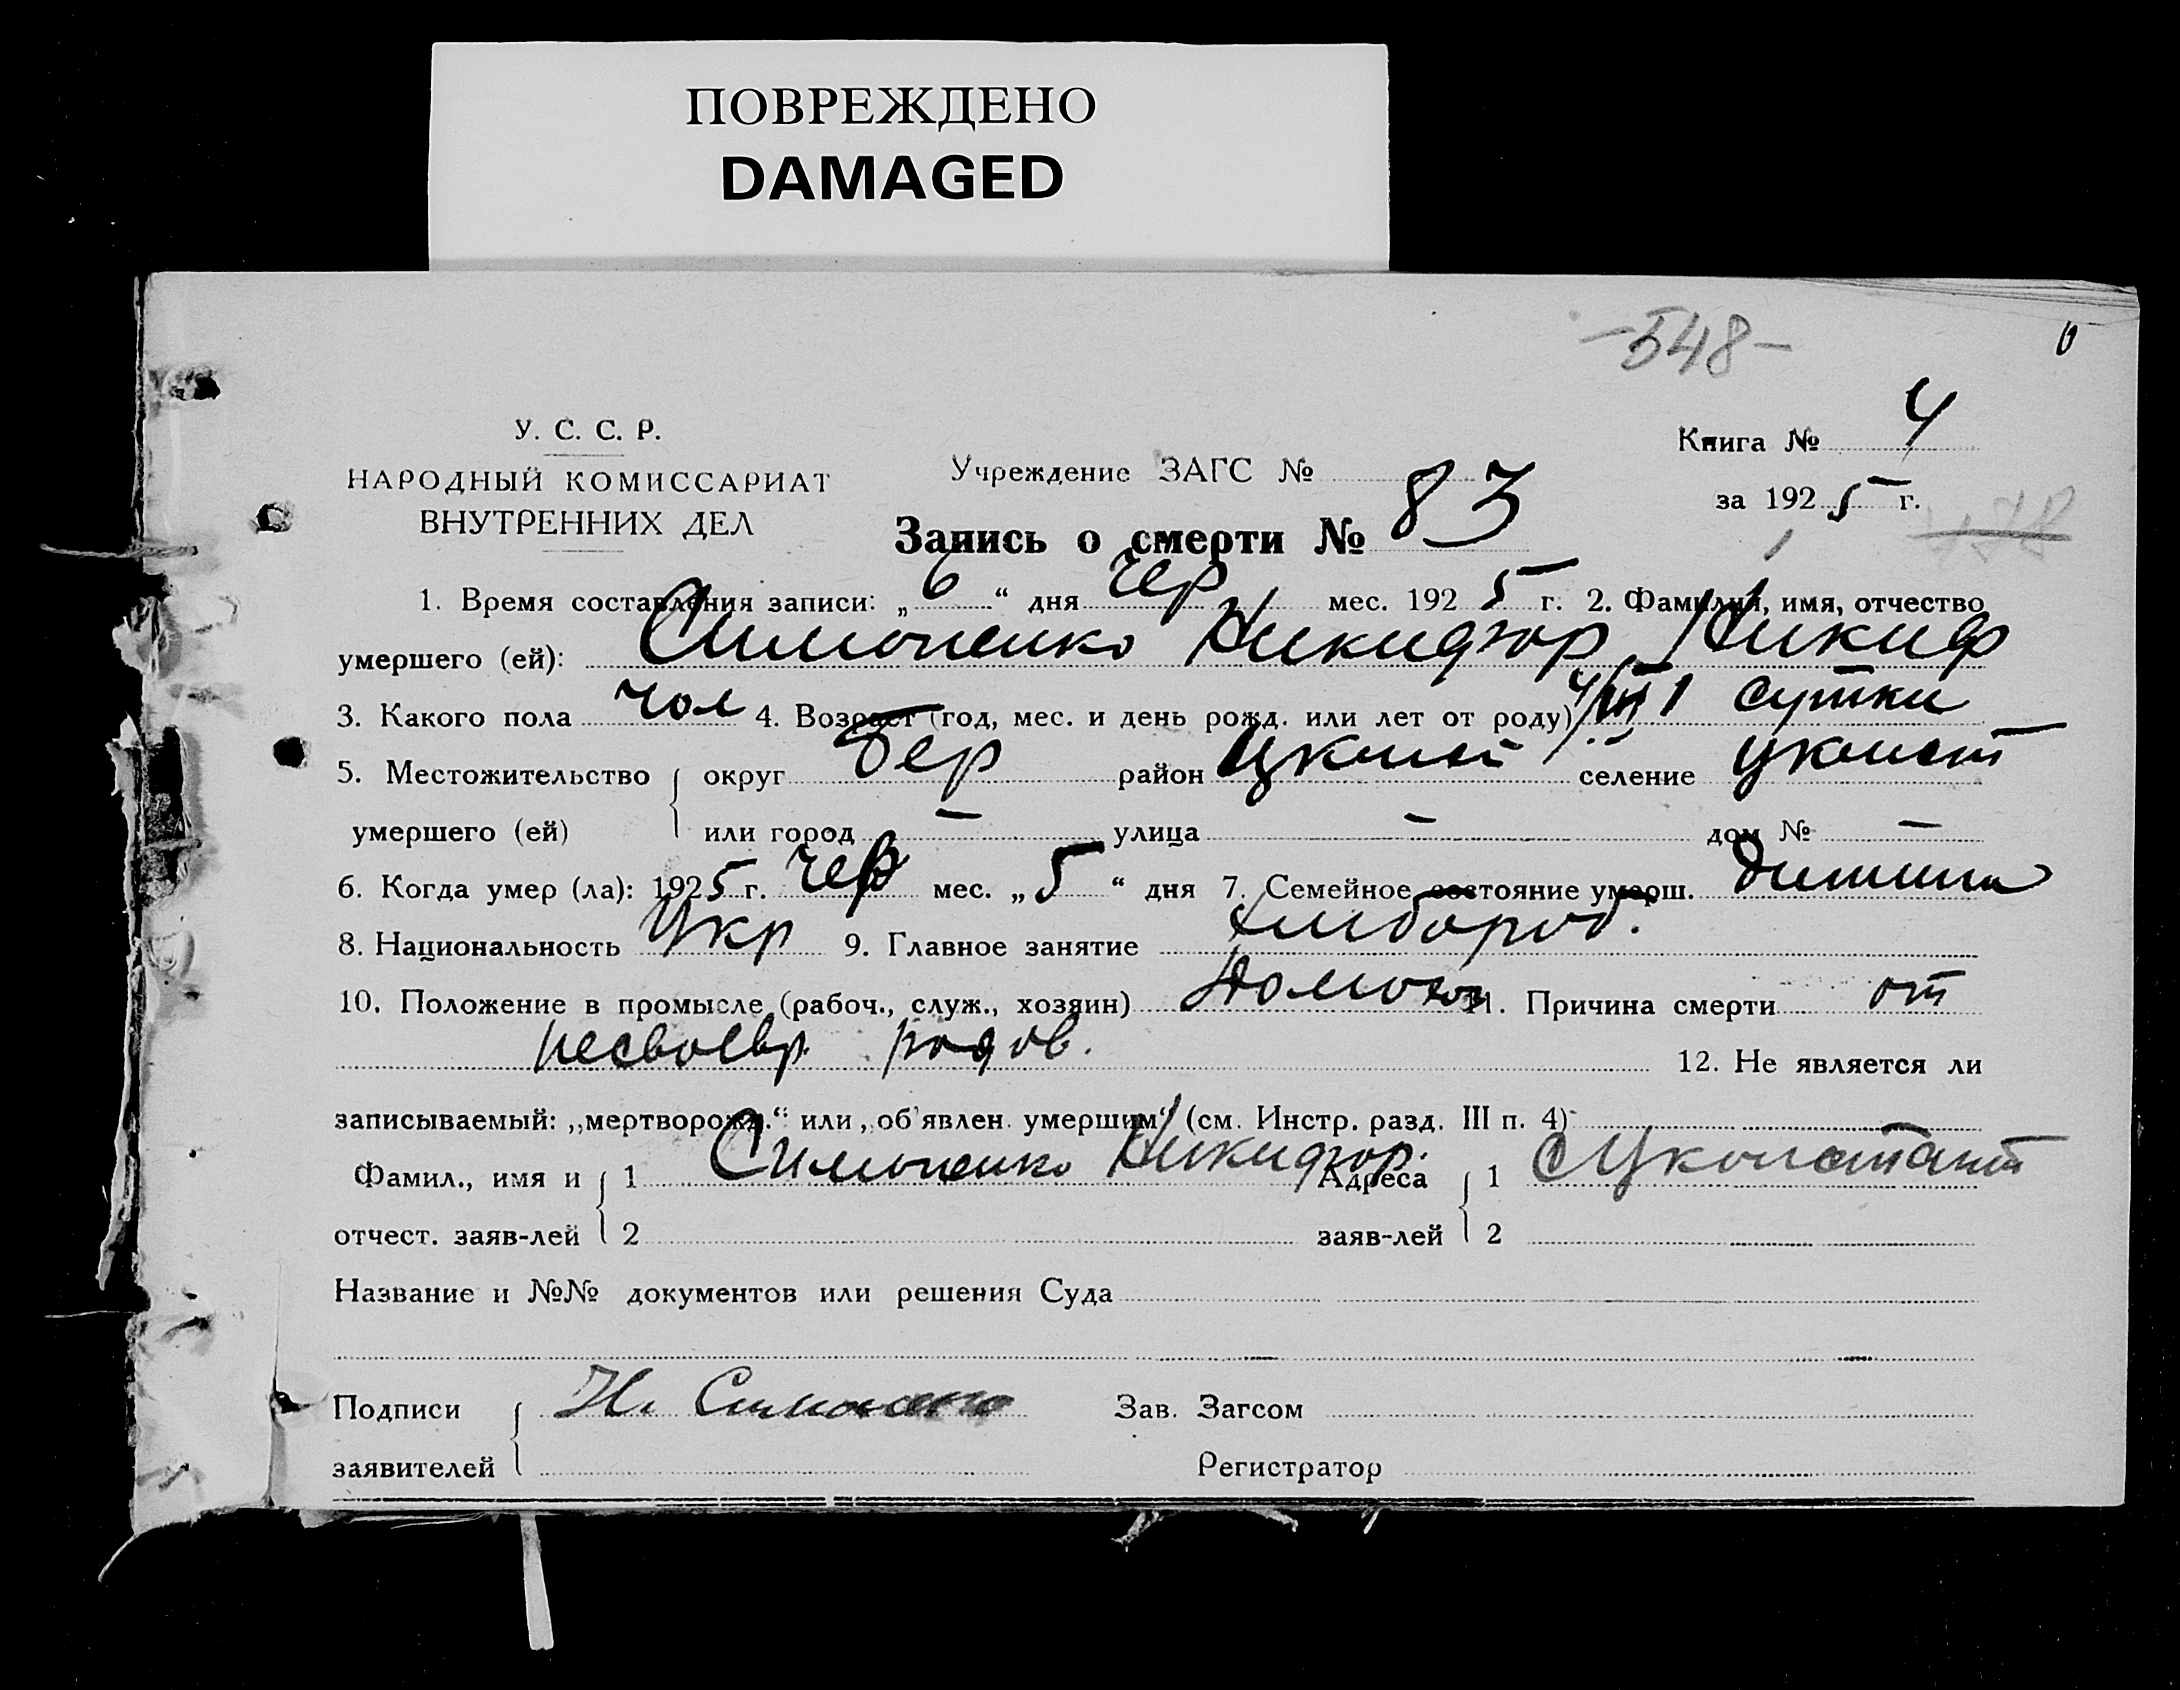 ПОВРЕЖДЕНО
DAMAGED
-548-
У. С. С. Р.
НАРОДНЫЙ КОМИССАРИАТ
ВНУТРЕННИХ ДЕЛ
Учреждение ЗАГС №
Книга № 4
за 1925 г.
Запись о смерти № 83
1. Время составления записи: „6“ дня чер мес. 1925 г. 2. Фамилия, имя, отчество
умершего (ей): Симоненко Никифор Никиф
3. Какого пола чол 4. Возраст (год, мес. и день рожд. или лет от роду) 1 сутки
5. Местожительство округ Бер район селение
умершего (ей) или город — улица — дом № —
6. Когда умер (ла): 1925 г. чер мес. „5“ дня 7. Семейное состояние умерш. дитина
8. Национальность Укр 9. Главное занятие хлібороб.
10. Положение в промысле (рабоч., служ., хозяин) 11. Причина смерти от
несвоевр. родов.
12. Не является ли
записываемый: „мертворожд.“ или „об'явлен. умершим“ (см. Инстр. разд. III п. 4)
Фамил., имя и 1 Симоненко Никифор. Адреса 1
отчест. заяв-лей 2 заяв-лей 2
Название и №№ документов или решения Суда
Подписи Н. Симоненко Зав. Загсом
заявителей Регистратор